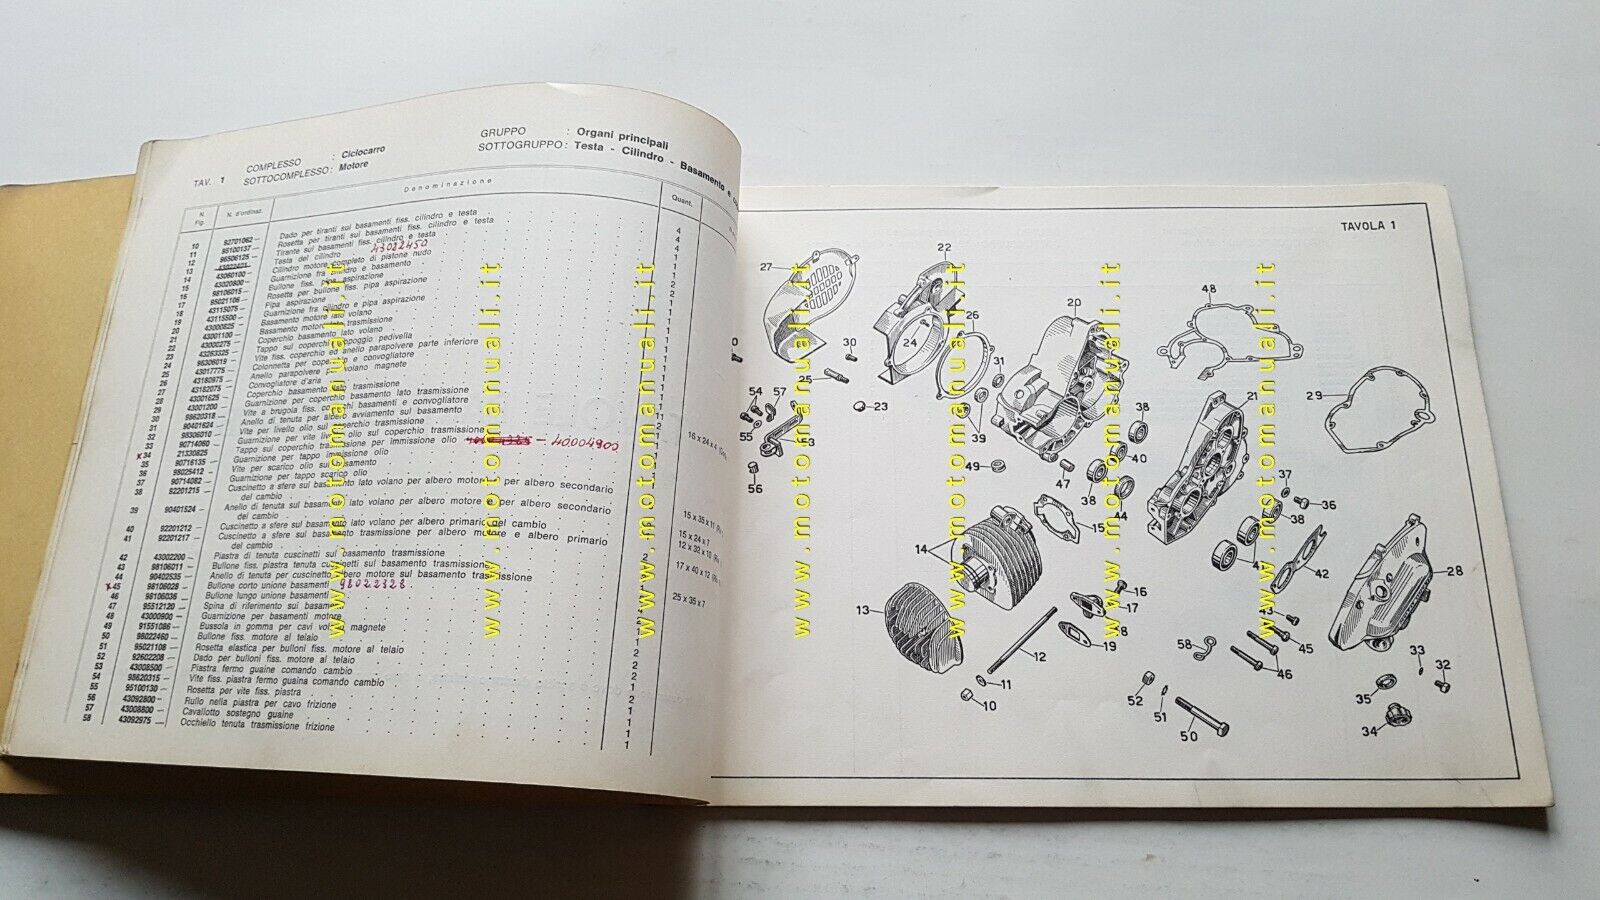 TAV. 1
COMPLESSO : Ciclocarro
SOTTOCOMPLESSO: Motore
GRUPPO : Organi principali
SOTTOGRUPPO: Testa - Cilindro - Basamento e
N. Fig.
N. d'ordinaz.
Denominazione
Quant.
10 92701062 — Dado per tiranti sui basamenti fiss. cilindro e testa 4
11 95100137 — Rosetta per tiranti sui basamenti fiss. cilindro e testa 4
12 96506125 — Tirante sui basamenti fiss. cilindro e testa 4
13 43022401 — Testa del cilindro 43022450 1
14 43060100 — Cilindro motore completo di pistone nudo 1
15 43020800 — Guarnizione fra cilindro e basamento 1
16 98106015 — Bullone fiss. pipa aspirazione 2
17 95021106 — Rosetta per bullone fiss. pipa aspirazione 2
18 43115075 — Pipa aspirazione 1
19 43115500 — Guarnizione fra cilindro e pipa aspirazione 1
20 43000825 — Basamento motore lato volano 1
21 43001100 — Basamento motore lato trasmissione 1
22 43000275 — Coperchio basamento lato volano 1
23 43263325 — Tappo sul coperchio appoggio pedivella
24 98306019 — Vite fiss. coperchio ed anello parapolvere parte inferiore
25 43017775 — Colonnetta per coperchio e convogliatore
26 43180975 — Anello parapolvere per volano magnete
27 43182075 — Convogliatore d'aria
28 43001625 — Coperchio basamento lato trasmissione
29 43001200 — Guarnizione per coperchio basamento lato trasmissione
30 98620318 — Vite a brugola fiss. coperchi basamenti e convogliatore
31 90401624 — Anello di tenuta per albero avviamento sul basamento 16 x 24 x 4
32 98306010 — Vite per livello olio sul coperchio trasmissione
33 90714060 — Guarnizione per vite livello olio sul coperchio trasmissione
x 34 21330825 — Tappo sul coperchio trasmissione per immissione olio — 40004900
35 90716135 — Guarnizione per tappo immissione olio
36 98025412 — Vite per scarico olio sul basamento
37 90714082 — Guarnizione per tappo scarico olio
38 92201215 — Cuscinetto a sfere sul basamento lato volano per albero motore e per albero secondario del cambio 15 x 35 x 11
39 90401524 — Anello di tenuta sul basamento lato volano per albero motore e per albero secondario del cambio 15 x 24 x 7
40 92201212 — Cuscinetto a sfere sul basamento lato volano per albero primario del cambio 12 x 32 x 10
41 92201217 — Cuscinetto a sfere sul basamento trasmissione per albero motore e albero primario del cambio 17 x 40 x 12
42 43002200 — Piastra di tenuta cuscinetti sul basamento trasmissione
43 98106011 — Bullone fiss. piastra tenuta cuscinetti sul basamento trasmissione
44 90402535 — Anello di tenuta per cuscinetto albero motore sul basamento trasmissione 25 x 35 x 7
x 45 98106028 — Bullone corto unione basamenti 98022328
46 98106036 — Bullone lungo unione basamenti
47 95512120 — Spina di riferimento sui basamenti
48 43000900 — Guarnizione per basamenti motore
49 91551086 — Bussola in gomma per cavi volano magnete
50 98022460 — Bullone fiss. motore al telaio 2
51 95021108 — Rosetta elastica per bulloni fiss. motore al telaio 2
52 92602208 — Dado per bulloni fiss. motore al telaio 2
53 43008500 — Piastra fermo guaina comando cambio 1
54 98620315 — Vite fiss. piastra fermo guaina comando cambio 2
55 95100130 — Rosetta per vite fiss. piastra 2
56 43092800 — Rullo nella piastra per cavo frizione 1
57 43008800 — Cavallotto sostegno guaine 1
58 43092975 — Occhiello tenuta trasmissione frizione 1
TAVOLA 1
27
22
26
20
48
24
30
31
25
54
57
23
55
53
56
39
38
40
49
47
38
44
21
29
37
36
38
41
42
28
14
15
13
16
17
18
19
12
11
10
43
45
46
58
52
51
50
33
32
35
34
www.motomanuali.it
www.motomanuali.it
www.motomanuali.it
www.motomanuali.it
www.motomanuali.it
www.motomanuali.it